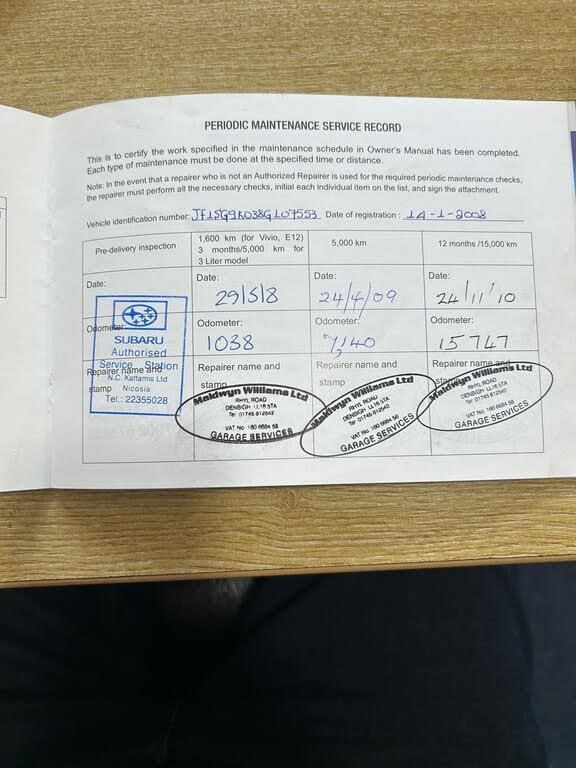 PERIODIC MAINTENANCE SERVICE RECORD
This is to certify the work specified in the maintenance schedule in Owner's Manual has been completed.
Each type of maintenance must be done at the specified time or distance.
Note: In the event that a repairer who is not an Authorized Repairer is used for the required periodic maintenance checks,
the repairer must perform all the necessary checks, initial each individual item on the list, and sign the attachment.
Vehicle identification number: JF1SG9K038G107553 Date of registration : 14-1-2008
Pre-delivery inspection
1,600 km (for Vivio, E12)
3 months/5,000 km for
3 Liter model
5,000 km
12 months /15,000 km
Date:
Date:
29/5/8
Date:
24/4/09
Date:
24/11/10
Odometer:
Odometer:
1038
Odometer:
7,140
Odometer:
15747
Repairer name and
stamp
SUBARU
Authorised
Service Station
N.C. Kattamis Ltd
Nicosia
Tel.: 22355028
Repairer name and
stamp
Maldwyn Williams Ltd
RHYL ROAD
DENBIGH LL16 5TA
Tel: 01745 812542
VAT No 160 6684 58
GARAGE SERVICES
Repairer name and
stamp
Maldwyn Williams Ltd
RHYL ROAD
DENBIGH LL16 5TA
Tel: 01745 812542
VAT No 160 6684 58
GARAGE SERVICES
Repairer name and
stamp
Maldwyn Williams Ltd
RHYL ROAD
DENBIGH LL16 5TA
Tel: 01745 812542
VAT No 160 6684 58
GARAGE SERVICES